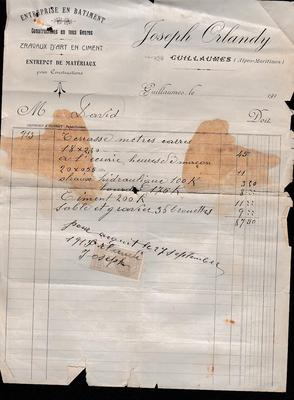 ENTREPRISE EN BATIMENT
Constructions en tous Genres
TRAVAUX D'ART EN CIMENT
ENTREPOT DE MATÉRIAUX
pour Constructions
Joseph Orlandy
GUILLAUMES (Alpes-Maritimes)
Guillaumes, le 191
M David Doit
913 Terrasse metres carres
18 x 250 45
a l'ecurie heures de maçon
20 x 0.55 11
chaux hydraulique 100 K 3,50
175 K 8
Ciment 200 K 11
Sable et gravier 36 brouettes 9
87,50
pour acquit le 27 septembre
1913
Joseph